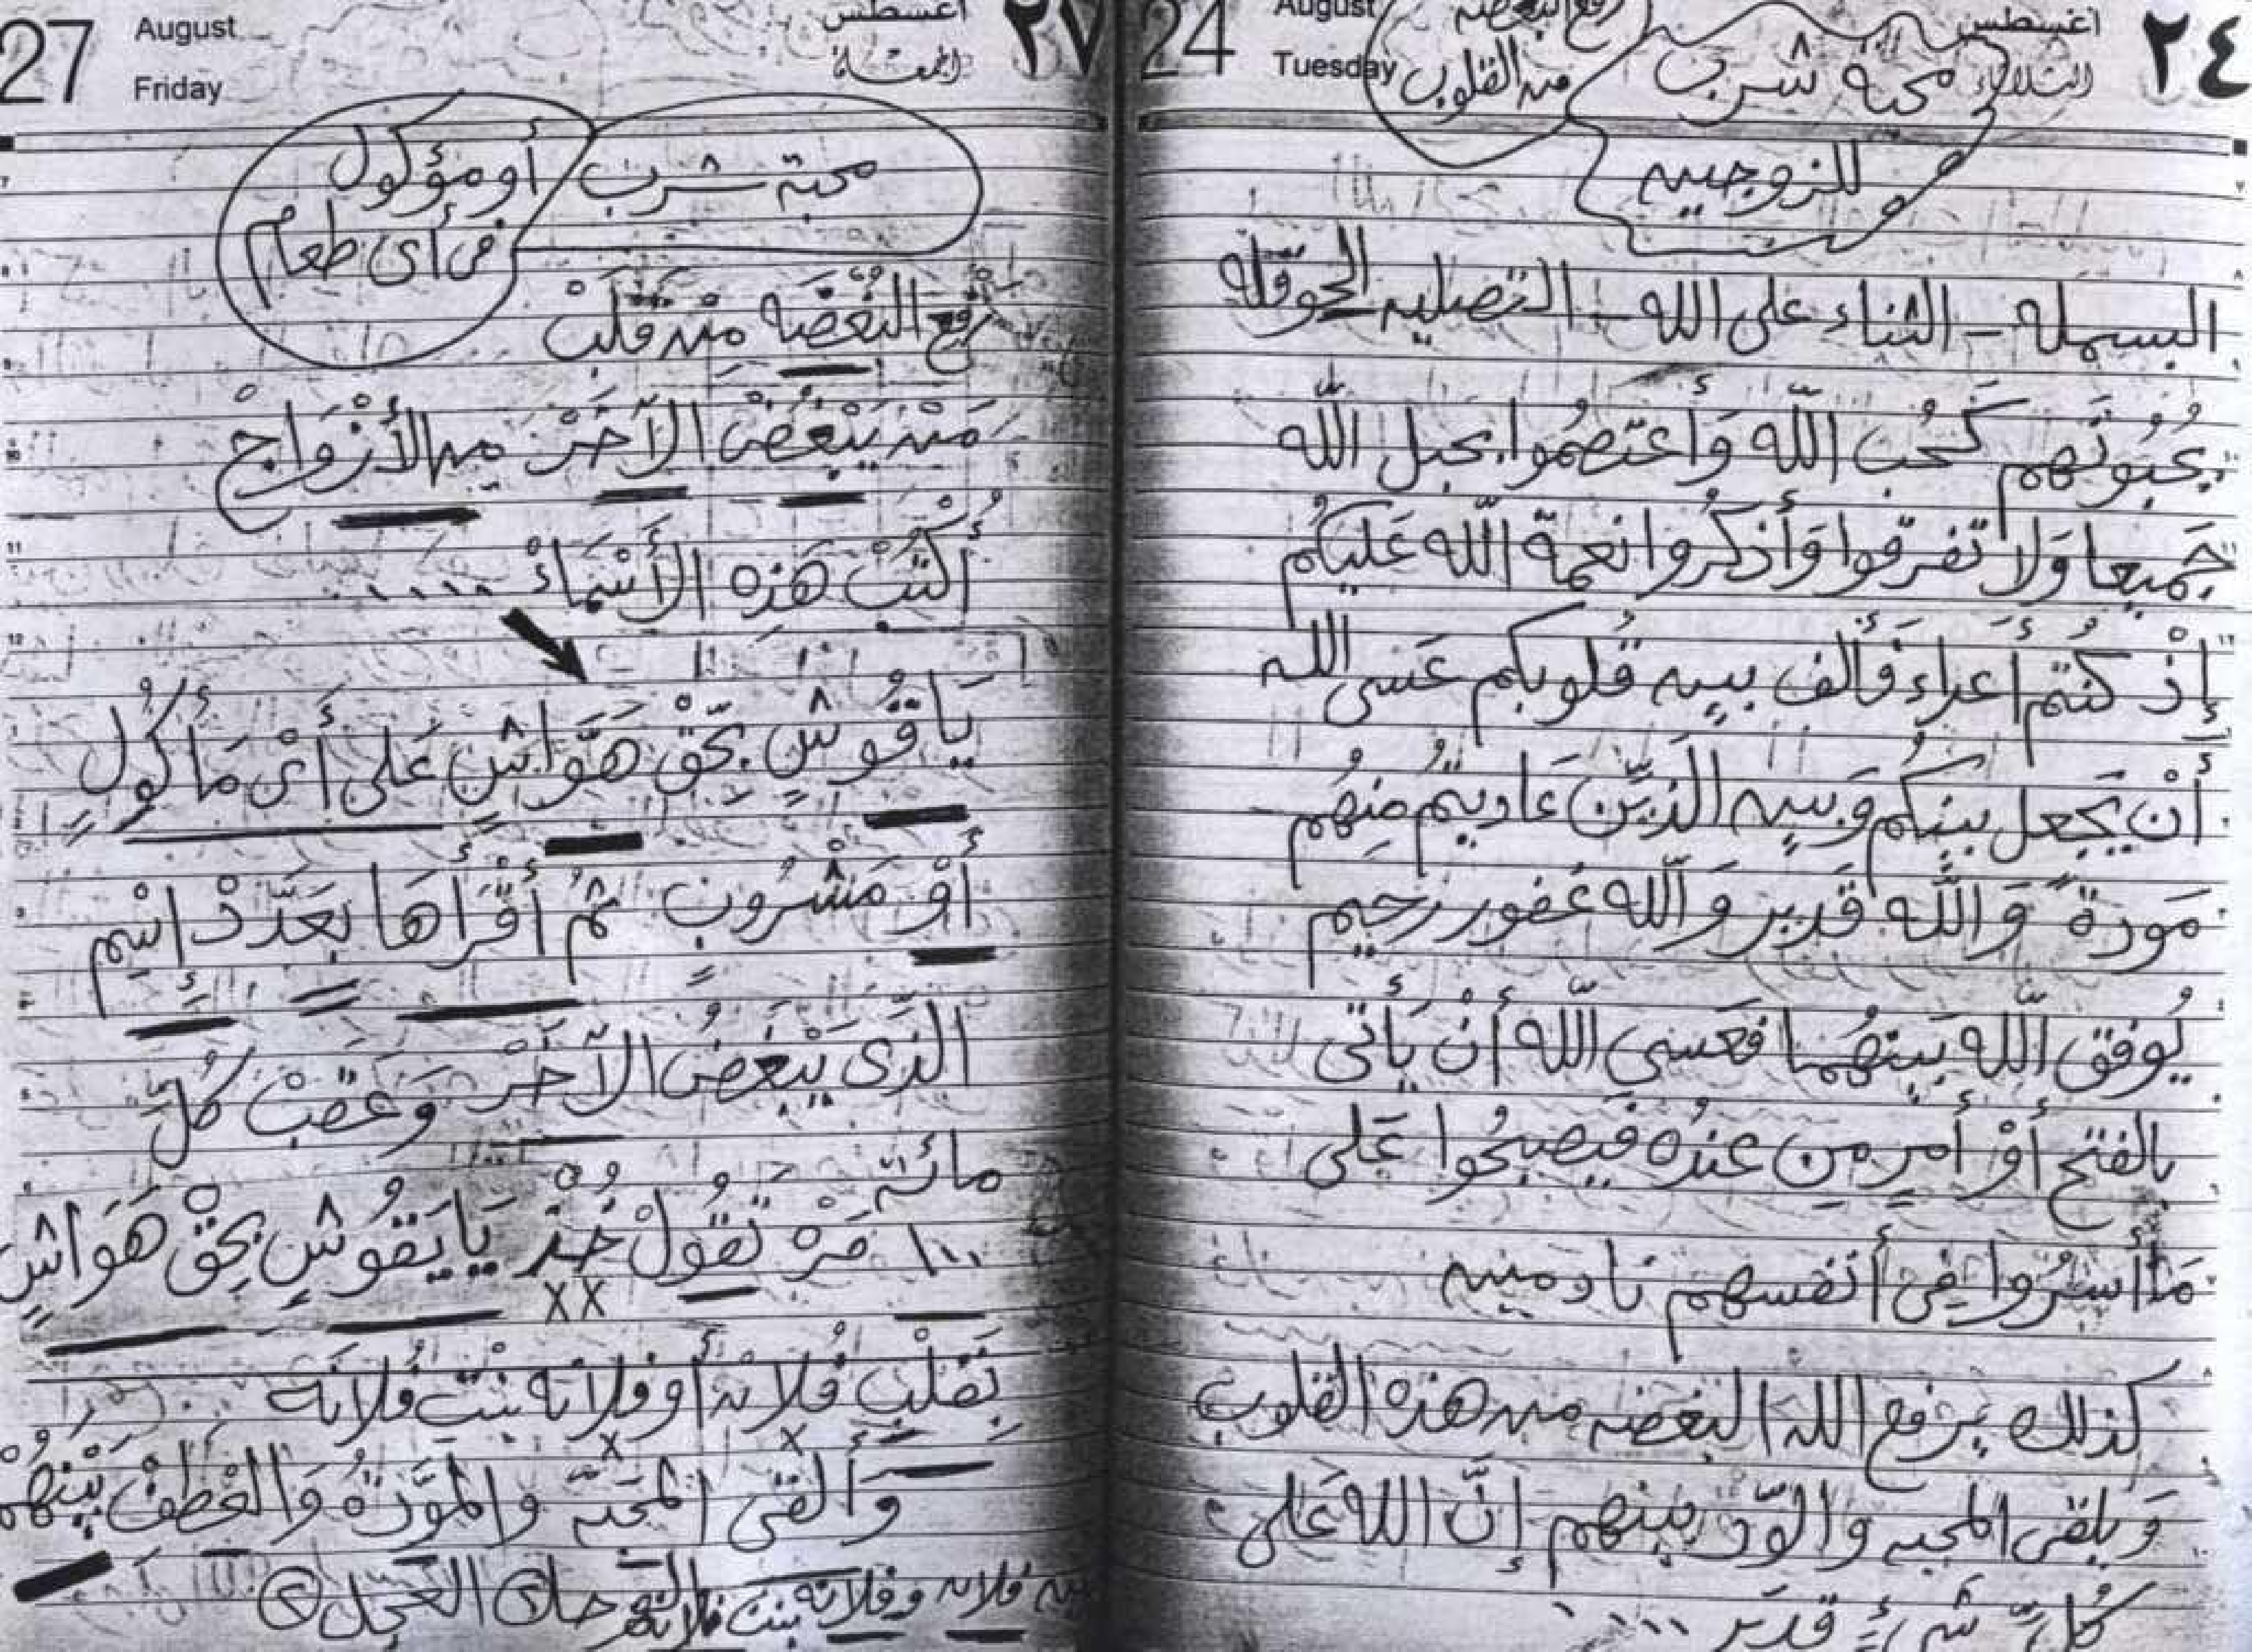 ٢٤
أغسطس
الثلاثاء
24
August
Tuesday
محبة شرب
للزوجين
رفع البغضه
من القلوب
البسمله - الثناء على الله - التصليه الحوقله
يحبونهم كحب الله وأعتصموا بحبل الله
جميعا ولا تفرقوا وأذكروا نعمة الله عليكم
إذ كنتم أعداء فألف بين قلوبكم عسى الله
أن يجعل بينكم وبين الذين عاديتم منهم
مودة والله قدير والله غفور رحيم
يوفق الله بينهما فعسى الله أن يأتى
بالفتح أو أمر من عنده فيصبحوا على
ما أسروا فى أنفسهم نادمين
كذلك يرفع الله البغضه من هذه القلوب
ويلقى المحبه والود بينهم إن الله على
كل شىء قدير
٢٧
أغسطس
الجمعة
27
August
Friday
محبة شرب
أو مؤكول
فى أى طعام
رفع البغضه من قلب
من يبغض الآخر من الأزواج
أكتب هذه الأسماء
ياقوش بحق هواش على أى مأكول
أو مشروب ثم أقرأها بعدد اسم
الذى يبغض الآخر وعقب كل
مائة
١٠٠ مرة تقول خذ يا يقوش بحق هواش
بقلب فلانه أو فلانه بنت فلانه
وألقى المحبه والموده والعطف بينهم
بين فلانه وفلانه بنت فلانه الوحا٢ العجل٢